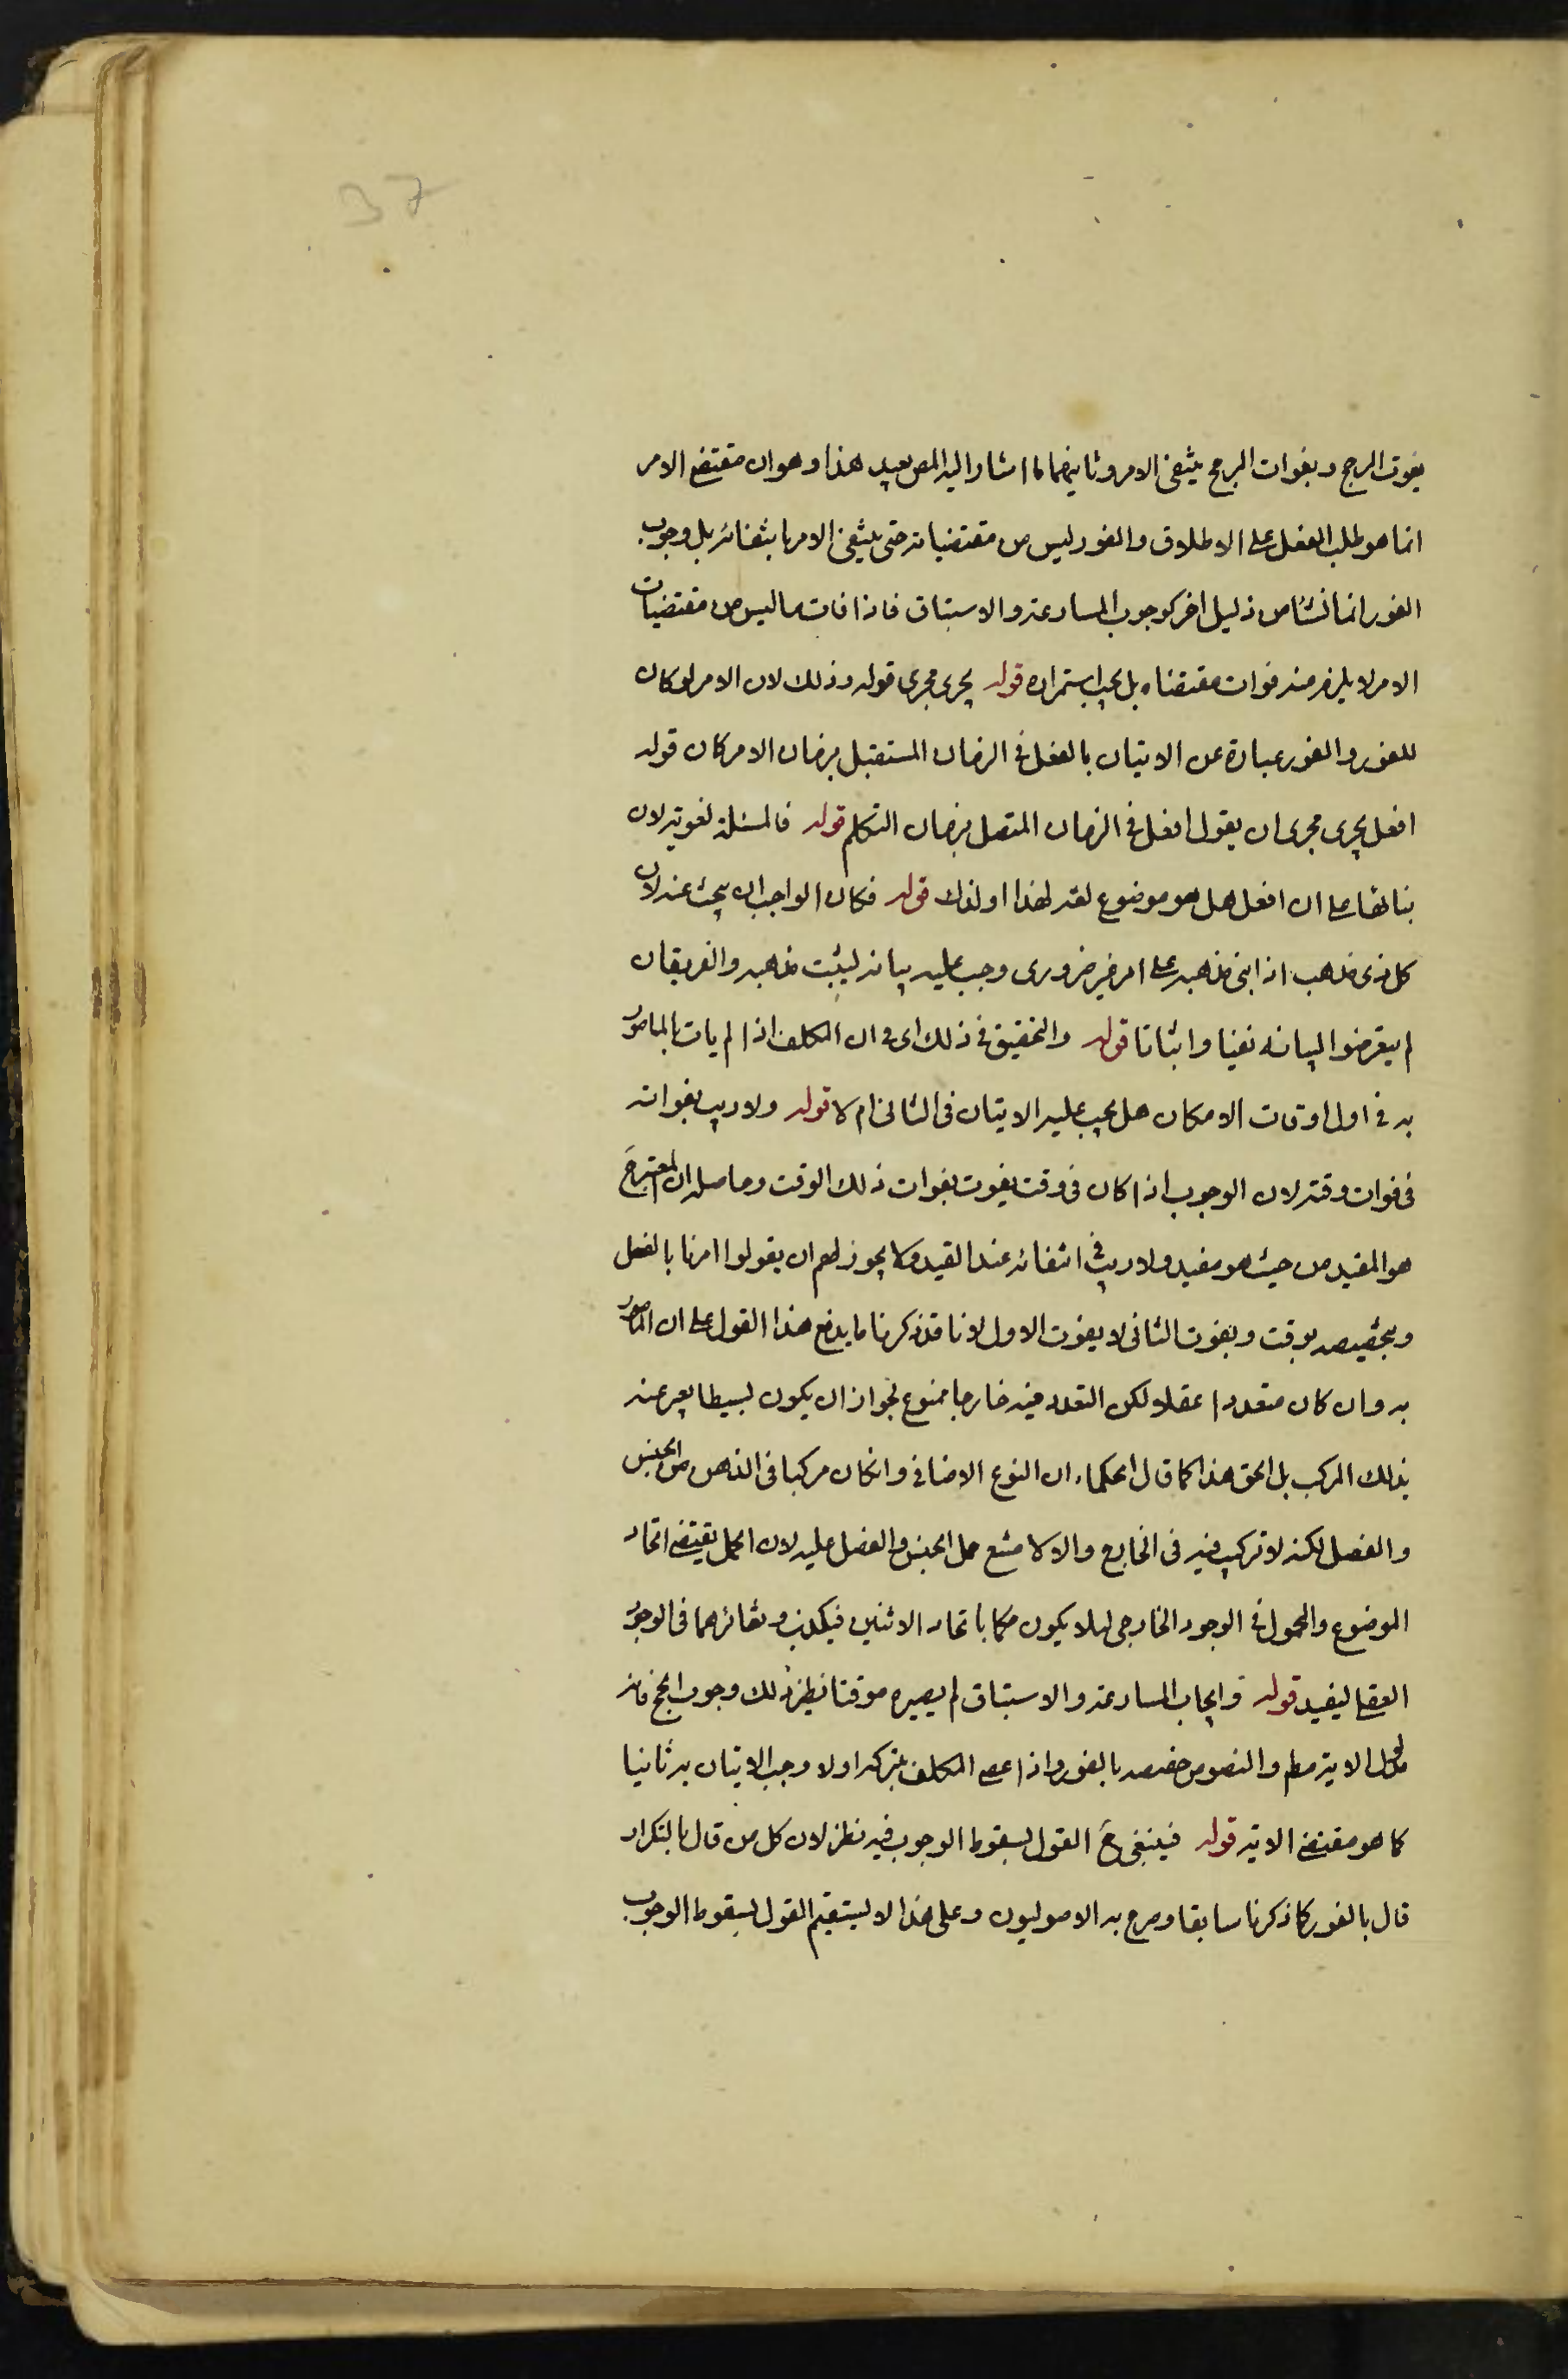 37
يفوت المرجح وبفوات المرجح ينتفى الامر وثانيهما ما اشار اليه المص بعيد هذا وهو ان مقتضى الامر
انما هو طلب الفعل على الاطلاق والفور ليس من مقتضياته حتى ينتفى الامر بانتفائه بل وجوب
الفور انما نشا من دليل اخر كوجوب المسارعة والاستباق فاذا فات ما ليس من مقتضيات
الامر لا يلزم منه فوات مقتضاه بل يجب استمراره قوله يجرى مجرى قوله وذلك لان الامر لو كان
للفور والفور عبارة عن الاتيان بالفعل فى الزمان المستقبل بزمان الامر كان قوله
افعل يجرى مجرى ان يقول افعل فى الزمان المتصل بزمان التكلم قوله فالمسئلة لغوية لان
بنائها على ان افعل هل هو موضوع لغة لهذا او لذاك قوله فكان الواجب ان يبحث عنه لان
كل ذى مذهب اذا ابنى مذهبه على امر غير ضرورى وجب عليه بيانه ليثبت مذهبه والفريقان
لم يتعرضوا لبيانه نفيا واثباتا قوله والتحقيق فى ذلك اى فى ان المكلف اذا لم يات بالمامور
به فى اول اوقات الامكان هل يجب عليه الاتيان فى الثانى ام لا قوله ولا ريب بفواته
فى فوات وقته لان الوجوب اذا كان فى وقت يفوت بفوات ذلك الوقت وحاصله ان المعتبر ح
هو المقيد من حيث هو مقيد ولا ريب فى انتفائه عند القيد ولا يجوز لهم ان يقولوا امرنا بالفعل
وبتخصيصه بوقت وبفوت الثانى لا يفوت الاول لانا قد ذكرنا ما يدفع هذا القول على ان المامور
به وان كان متعددا عقلا ولكن التعدد فيه خارجا ممنوع لجواز ان يكون بسيطا يعبر عنه
بذلك المركب بل الحق هذا كما قال الحكماء ان النوع الاضافى وانكان مركبا فى الذهن من الجنس
والفصل لكنه لا تركيب فيه فى الخارج والا لامتنع حمل الجنس والفصل عليه لان الحمل يقتضى اتحاد
الموضوع والمحمول فى الوجود الخارجى لئلا يكون حكما باتحاد الاثنين فيكذب وتغائرهما فى الوجود
العقلى ليفيد قوله وايجاب المسارعة والاستباق لم يصيره موقتا نظير ذلك وجوب الحج فانه
مدلول الاية مطلقا والنصوص خصصه بالفور واذا عصى المكلف بتركه اولا وجب الاتيان به ثانيا
كما هو مقتضى الاية قوله فينبغى ح القول بسقوط الوجوب فيه نظر لان كل من قال بالتكرار
قال بالفور كما ذكرنا سابقا وصرح به الاصوليون وعلى هذا لا يستقيم القول بسقوط الوجوب